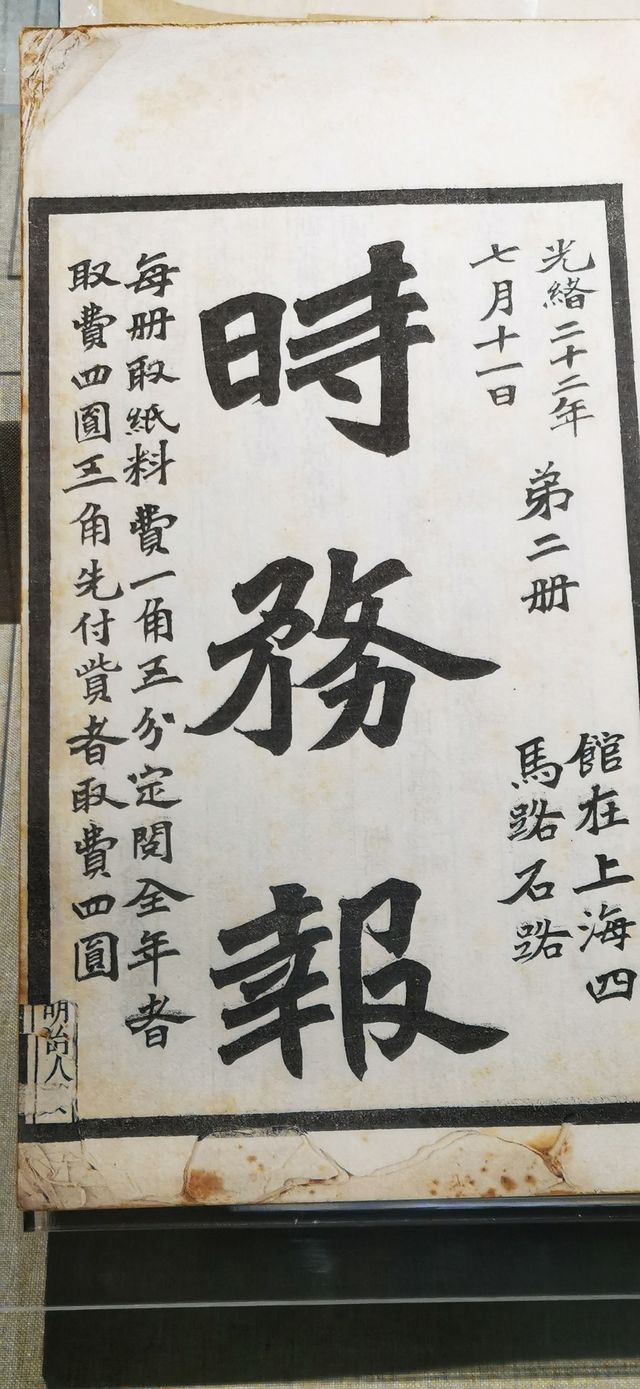 光緒二十二年
七月十一日
第二册
館在上海四
馬路石路
時務報
每册取紙料費一角五分定閱全年者
取費四圓五角先付貲者取費四圓
明治人